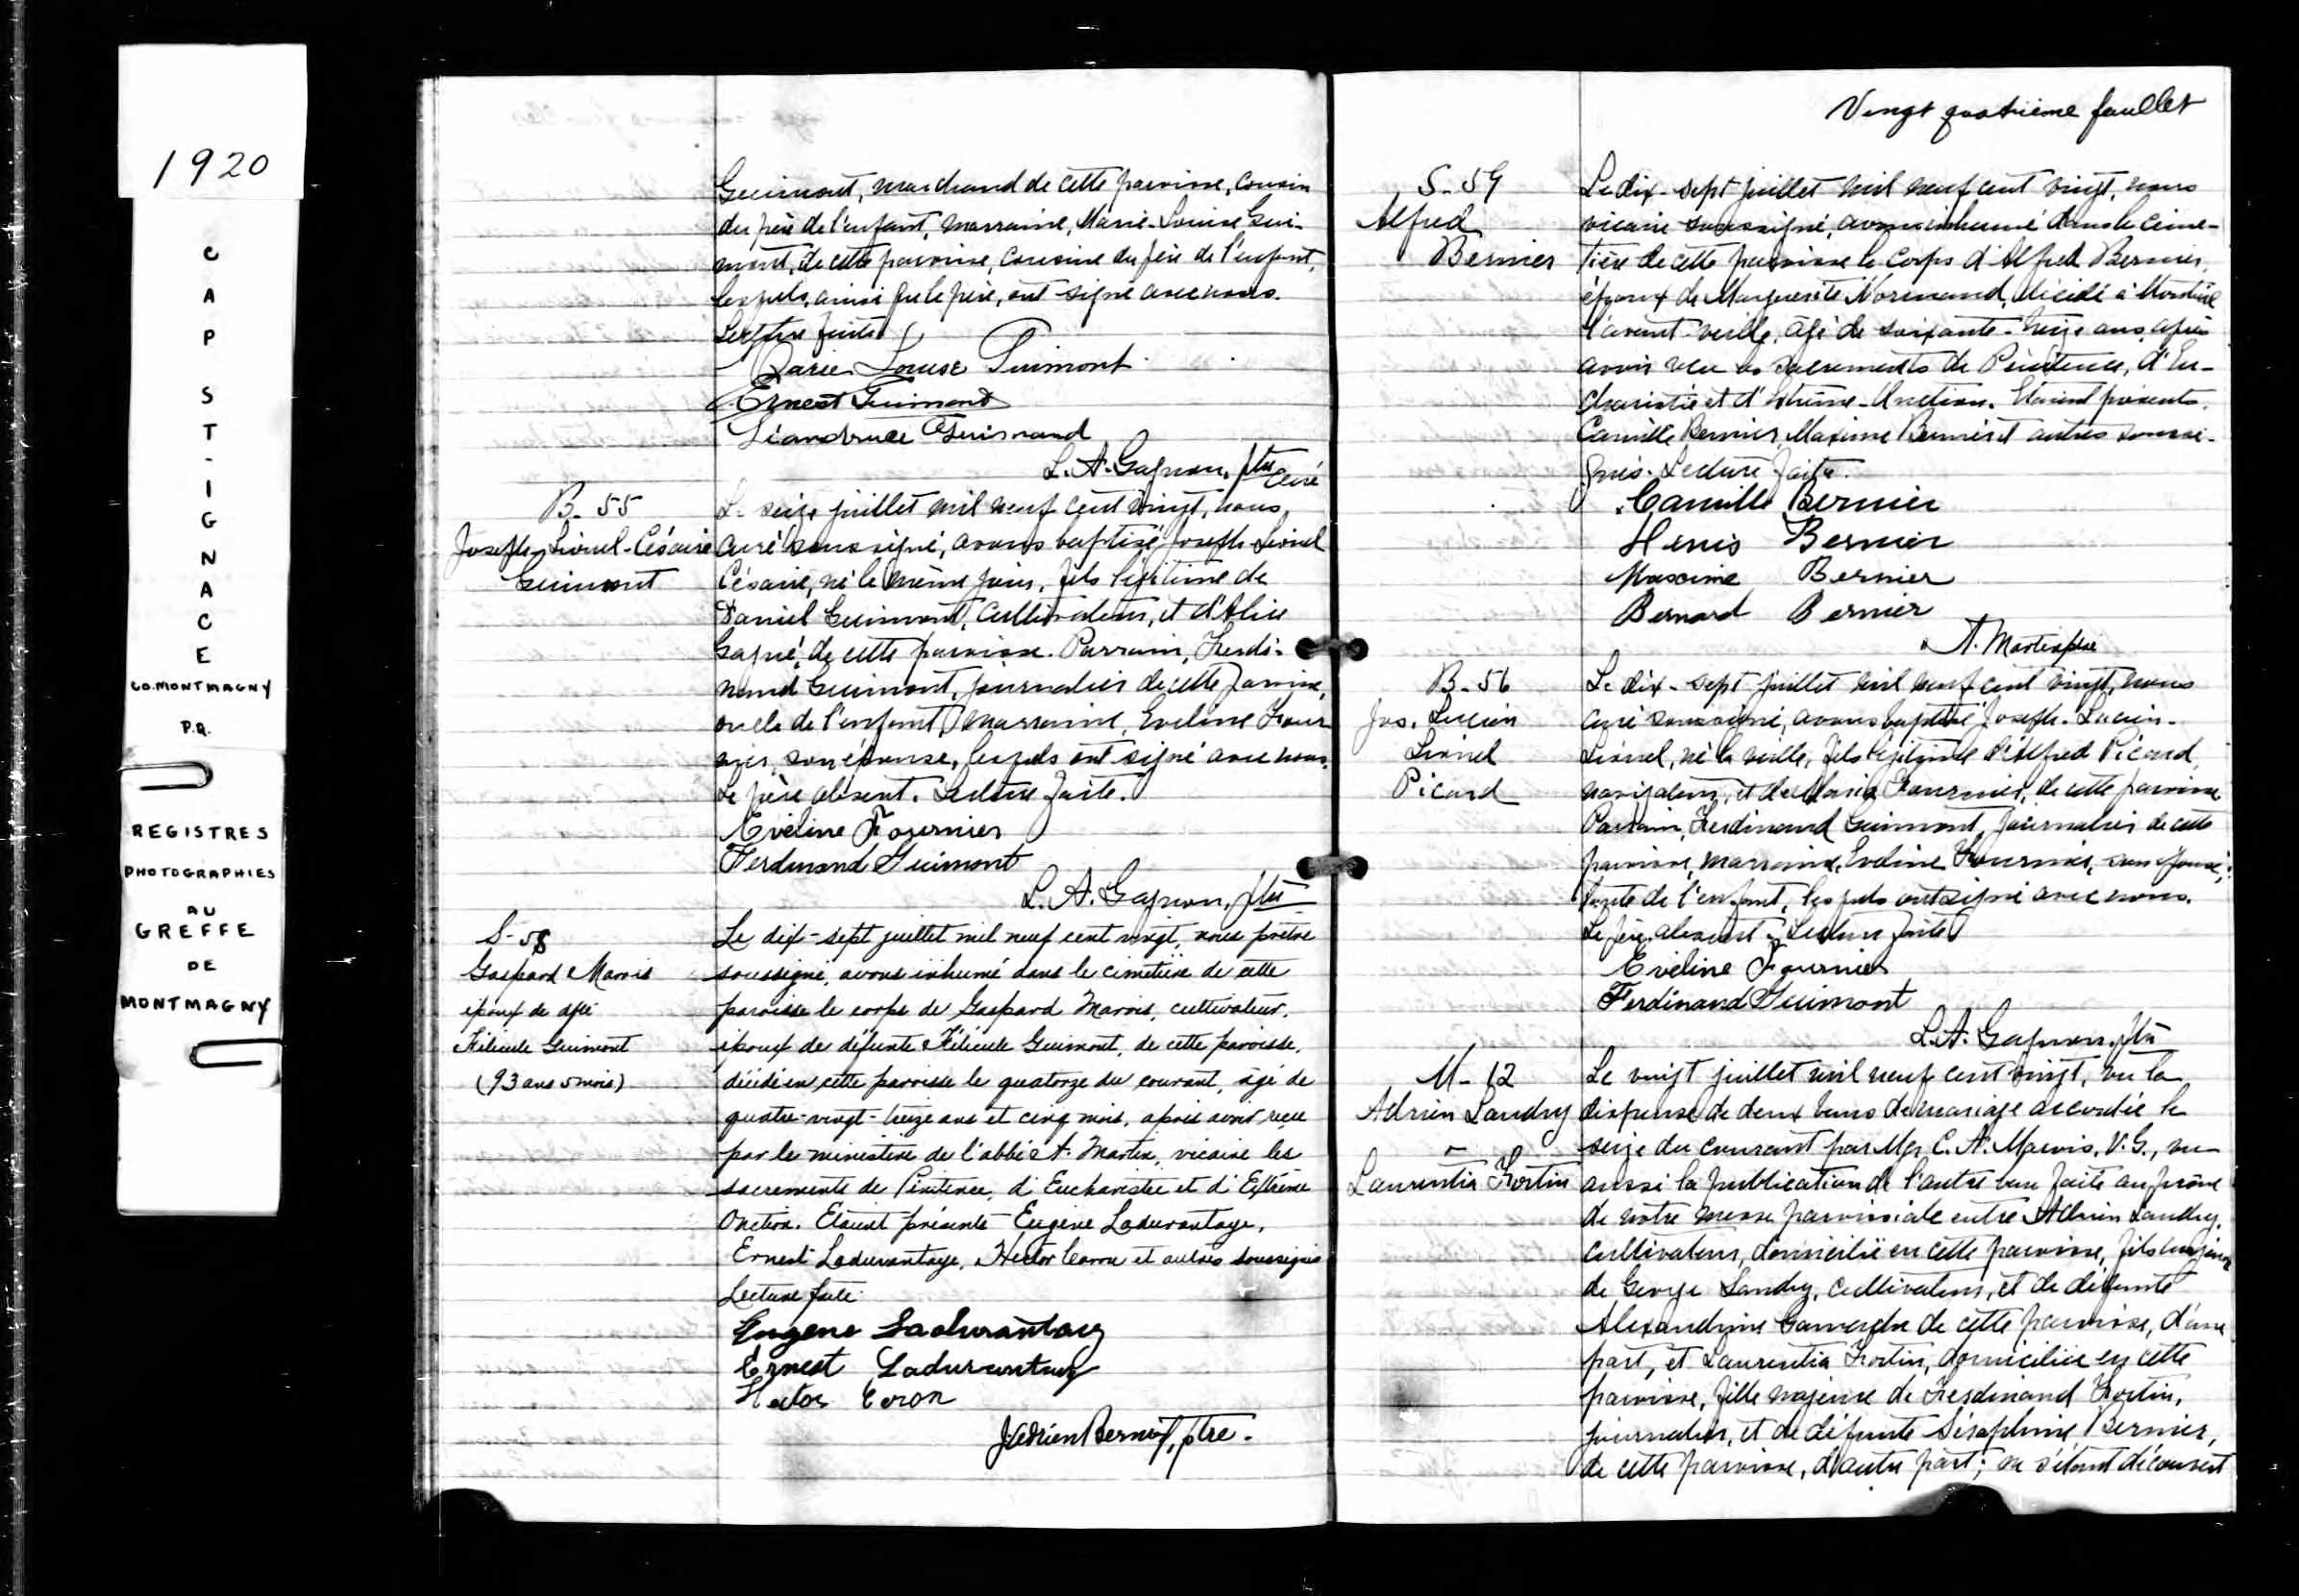 1920
CAP ST-IGNACE
CO. MONTMAGNY
P.Q.
REGISTRES
PHOTOGRAPHIES
AU
GREFFE
DE
MONTMAGNY
Guimont, marchand de cette paroisse, cousin
du père de l'enfant, marraine, Marie-Louise Gui-
mont, de cette paroisse, cousine du père de l'enfant,
lesquels, ainsi que le père, ont signé avec nous.
Lecture faite.
Marie Louise Guimont
Ernest Guimont
Guimond
L. A. Gagnon, ptre
curé
B. 55
Joseph-Lionel-Césaire
Guimont
Le seize juillet mil neuf cent vingt, nous,
curé soussigné, avons baptisé Joseph Lionel
Césaire, né le même jour, fils légitime de
Daniel Guimont, cultivateur, et d'Alice
Gagné, de cette paroisse. Parrain, Ferdi-
nand Guimont, journalier de cette paroisse,
oncle de l'enfant, marraine, Eveline Four
nier, son épouse, lesquels ont signé avec nous.
Le père absent. Lecture faite.
Eveline Fournier
Ferdinand Guimont
L. A. Gagnon, ptre
S-58
Gaspard Marois
époux de dfte
Félicule Guimont
(93 ans 5 mois)
Le dix-sept juillet mil neuf cent vingt, nous prêtre
soussigné, avons inhumé dans le cimetière de cette
paroisse le corps de Gaspard Marois, cultivateur,
époux de défunte Félicule Guimont, de cette paroisse,
décédé en cette paroisse le quatorze du courant, âgé de
quatre-vingt-treize ans et cinq mois, après avoir reçu
par le ministère de l'abbé A. Martin, vicaire les
sacrements de Pénitence, d'Eucharistie et d'Extrême
Onction. Etaient présents Eugène Ladurantaye,
Ernest Ladurantaye, Hector Caron et autres soussignés
Lecture faite.
Eugene Ladurantay
Ernest Ladurantay
Hector Coron
J. Adrien Bernier, ptre.
Vingt quatrième feuillet
S-59
Alfred
Bernier
Le dix-sept juillet mil neuf cent vingt, nous
vicaire soussigné, avons inhumé dans le cime-
tière de cette paroisse le corps d'Alfred Bernier,
époux de Marguerite Normand, décédé à
l'avant-veille, âgé de soixante-treize ans, après
avoir reçu les sacrements de Pénitence, d'Eu-
charistie et d'Extrême-Onction. Etaient présents
Camille Bernier, Maxime Bernier et autres soussi-
gnés. Lecture faite.
Camille Bernier
Bernier
Maxime Bernier
Bernard Bernier
A. Martin ptre
B-56
Jos. Lucien
Lionel
Picard
Le dix-sept juillet mil neuf cent vingt, nous
curé soussigné, avons baptisé Joseph-Lucien-
Lionel, né la veille, fils légitime d'Alfred Picard,
navigateur, et de Maria Fournier, de cette paroisse
Parrain, Ferdinand Guimont, journalier de cette
paroisse, marraine, Eveline Fournier, son épouse,
tante de l'enfant, lesquels ont signé avec nous.
Le père absent. Lecture faite.
Eveline Fournier
Ferdinand Guimont
L. A. Gagnon, ptre
M-12
Adrien Landry
Laurentia Fortin
Le vingt juillet mil neuf cent vingt, vu la
dispense de deux bans de mariage accordée le
seize du courant par Mgr C. A. Marois, V.G., vu
aussi la publication de l'autre ban faite au prône
de notre messe paroissiale entre Adrien Landry,
cultivateur, domicilié en cette paroisse, fils majeur
de George Landry, cultivateur, et de défunte
Alexandrine Gamache de cette paroisse, d'une
part, et Laurentia Fortin, domiciliée en cette
paroisse, fille majeure de Ferdinand Fortin,
journalier, et de défunte Séraphine Bernier,
de cette paroisse, d'autre part; ne s'étant découvert